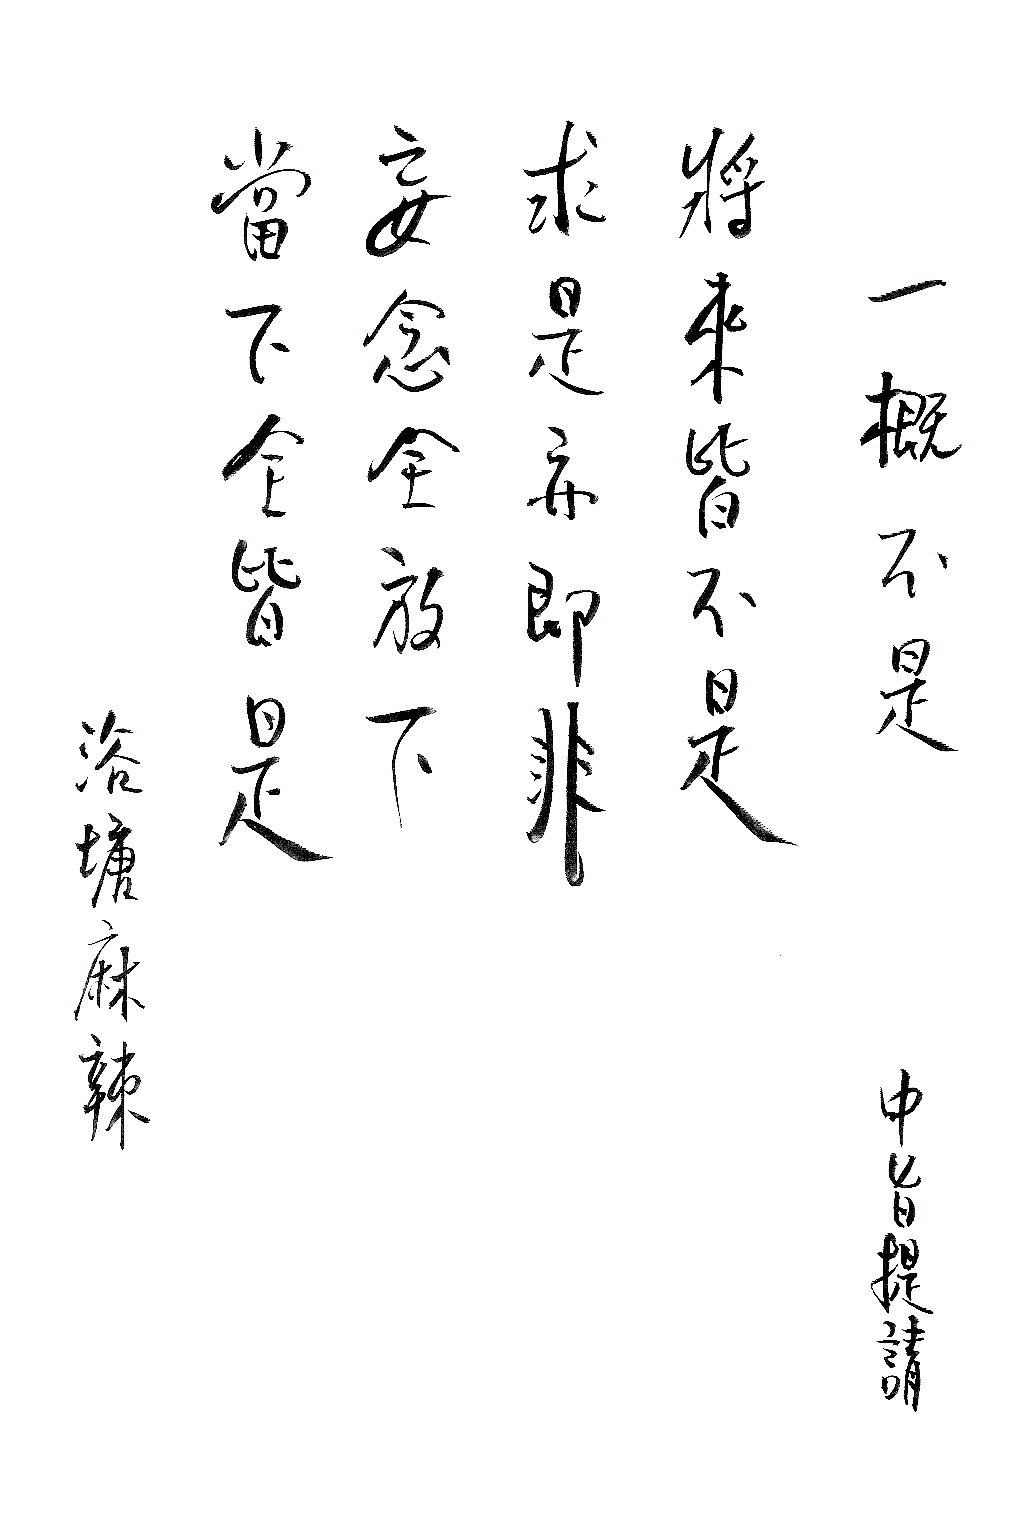 一概不是
申旨提請
將來皆不是
求是亦即非
妄念全放下
當下全皆是
浴塘麻辣